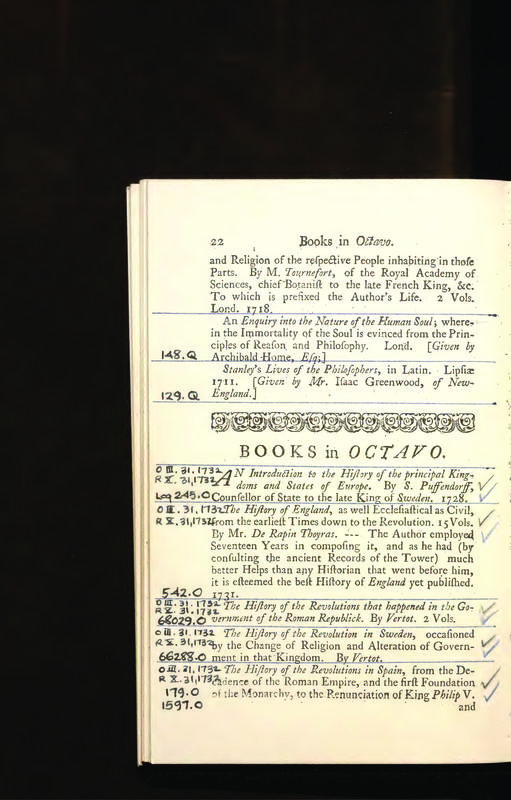 22 Books in Octavo.
and Religion of the reſpective People inhabiting in thoſe
Parts. By M. Tournefort, of the Royal Academy of
Sciences, chief Botaniſt to the late French King, &c.
To which is prefixed the Author's Life. 2 Vols.
Lond. 1718.
An Enquiry into the Nature of the Human Soul; where-
in the Immortality of the Soul is evinced from the Prin-
ciples of Reaſon and Philoſophy. Lond. [Given by
148.Q Archibald Home, Eſq;]
Stanley's Lives of the Philoſophers, in Latin. Lipſiæ
1711. [Given by Mr. Iſaac Greenwood, of New-
129.Q England.]
BOOKS in OCTAVO.
O III. 31. 1732 AN Introduction to the Hiſtory of the principal King-
R X. 31,1732 doms and States of Europe. By S. Puffendorff,
Log 245.O Counſellor of State to the late King of Sweden. 1728.
O III. 31, 1732 The Hiſtory of England, as well Eccleſiaſtical as Civil,
R X. 31,1732 from the earlieſt Times down to the Revolution. 15 Vols.
By Mr. De Rapin Thoyras. --- The Author employed
Seventeen Years in compoſing it, and as he had (by
conſulting the ancient Records of the Tower) much
better Helps than any Hiſtorian that went before him,
it is eſteemed the beſt Hiſtory of England yet publiſhed.
542.O 1731.
O III. 31. 1732 The Hiſtory of the Revolutions that happened in the Go-
R X. 31. 1732
68029.O vernment of the Roman Republick. By Vertot. 2 Vols.
O III. 31. 1732 The Hiſtory of the Revolution in Sweden, occaſioned
R X. 31,1732 by the Change of Religion and Alteration of Govern-
66288.O ment in that Kingdom. By Vertot.
O III. 31, 1732 The Hiſtory of the Revolutions in Spain, from the De-
R X. 31,1732 cadence of the Roman Empire, and the firſt Foundation
179.O of the Monarchy, to the Renunciation of King Philip V.
1597.O and